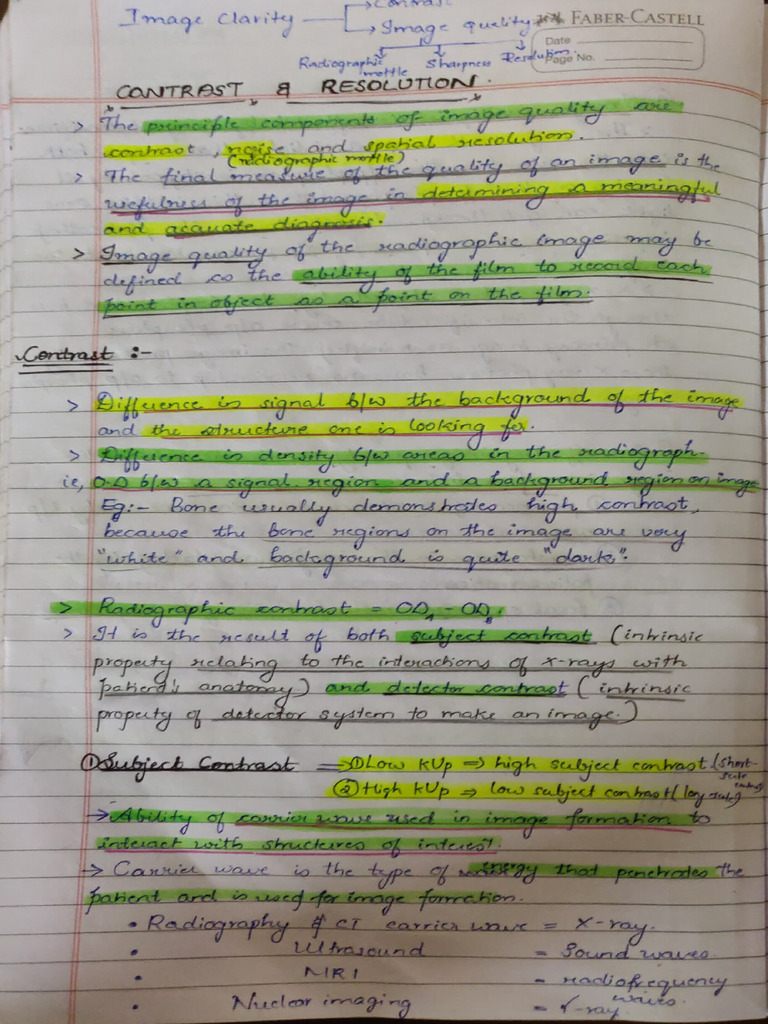 Contrast
Image clarity
Image quality
FABER-CASTELL
Date
Page No.
Radiographic mottle
Sharpness
Resolution
CONTRAST & RESOLUTION.
> The principle components of image quality are
contrast, noise and spatial resolution.
(radiographic mottle)
> The final measure of the quality of an image is the
usefulness of the image in determining a meaningful
and accurate diagnosis.
> Image quality of the radiographic image may be
defined as the ability of the film to record each
point in object as a point on the film.
Contrast :-
> Difference in signal b/w the background of the image
and the structure one is looking for.
> Difference in density b/w areas in the radiograph.
ie, O.D b/w a signal region and a background region on image
Eg:- Bone usually demonstrates high contrast,
because the bone regions on the image are very
"white" and background is quite "dark".
> Radiographic contrast = OD
> It is the result of both subject contrast (intrinsic
property relating to the interactions of x-rays with
patient's anatomy) and detector contrast (intrinsic
property of detector system to make an image.)
① Subject Contrast ⇒ ① Low kVp ⇒ high subject contrast (short-
② High kVp ⇒ low subject contrast (long
→ Ability of carrier wave used in image formation to
interact with structures of interest.
→ Carrier wave is the type of energy that penetrates the
patient and is used for image formation.
• Radiography & CT carrier wave = X-ray.
• Ultrasound = Sound waves.
• MRI - radiofrequency waves.
• Nuclear imaging = γ-ray